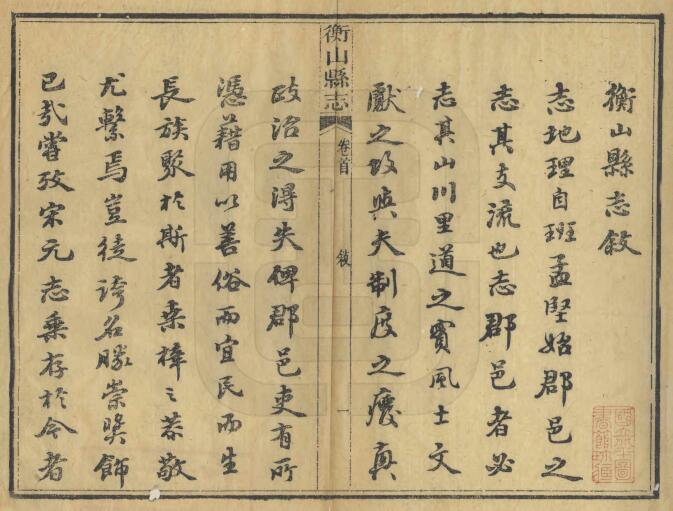 衡山縣志敘
志地理自班孟堅始郡邑之
志其支流也志郡邑者必
志其山川里道之實風土文
獻之攷與夫制度之廢興
衡山縣志
卷首
敘
一
政治之得失俾郡邑吏有所
憑藉用以善俗而宜民而生
長族聚於斯者桑梓之恭敬
尤繫焉豈徒誇名勝崇奬飾
已哉嘗攷宋元志乘存於今者